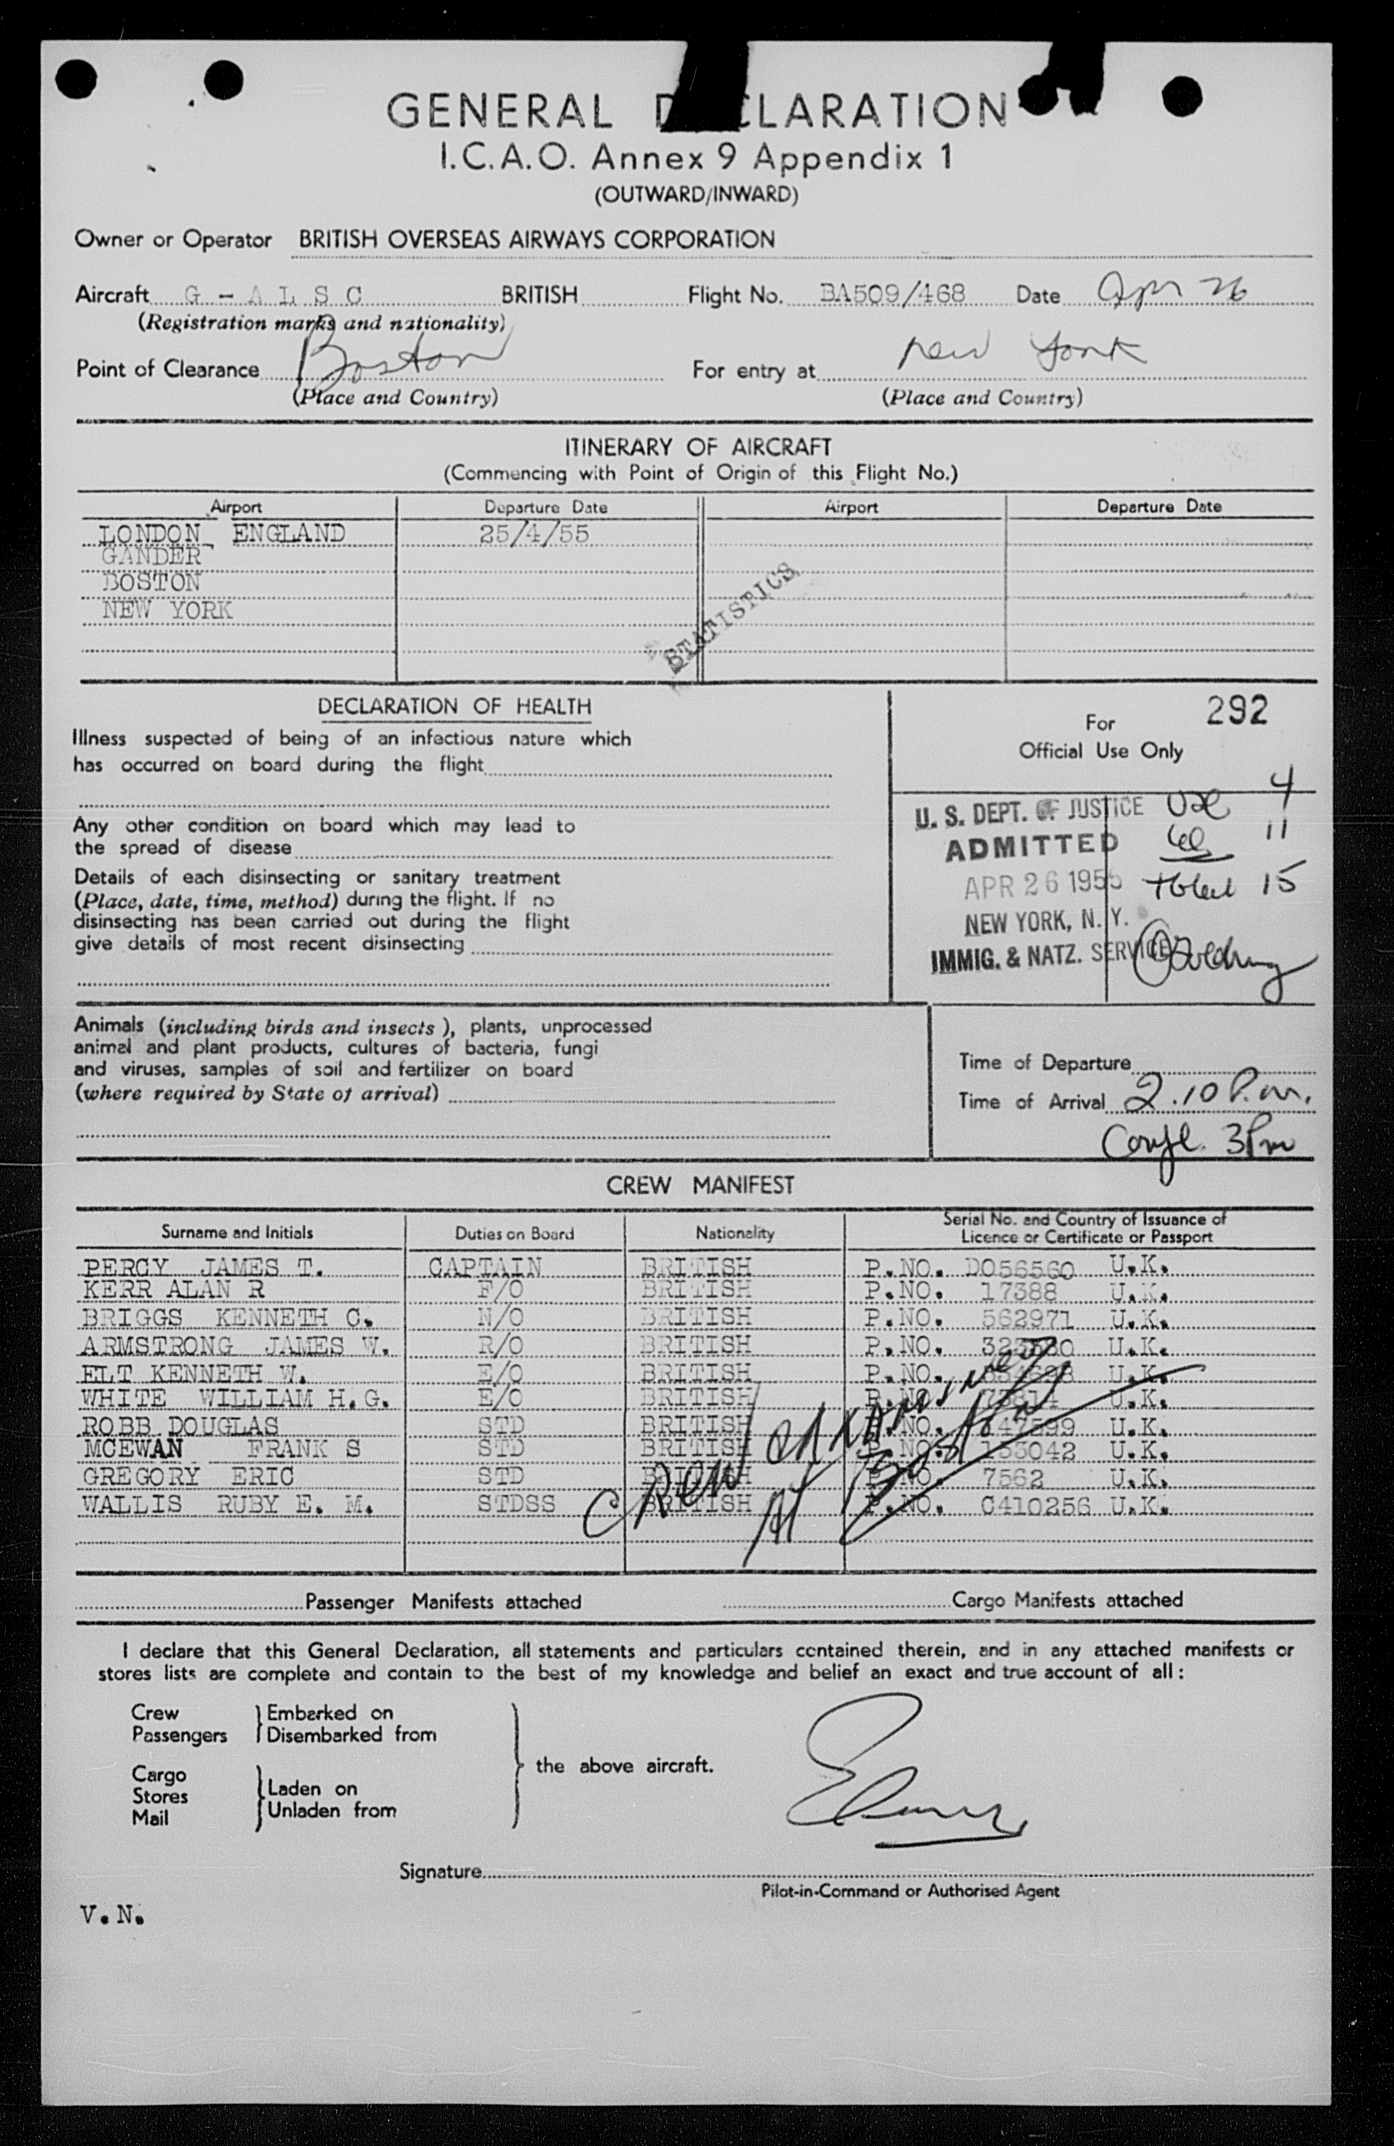 GENERAL DECLARATION
I.C.A.O. Annex 9 Appendix 1
(OUTWARD/INWARD)
Owner or Operator BRITISH OVERSEAS AIRWAYS CORPORATION
Aircraft G - A L S C BRITISH Flight No. BA509/468 Date Apr 26
(Registration marks and nationality)
Point of Clearance Boston For entry at New York
(Place and Country) (Place and Country)
ITINERARY OF AIRCRAFT
(Commencing with Point of Origin of this Flight No.)
Airport Departure Date Airport Departure Date
LONDON ENGLAND 25/4/55
GANDER
BOSTON
NEW YORK
STATISTICS
DECLARATION OF HEALTH
Illness suspected of being of an infectious nature which
has occurred on board during the flight
Any other condition on board which may lead to
the spread of disease
Details of each disinsecting or sanitary treatment
(Place, date, time, method) during the flight. If no
disinsecting has been carried out during the flight
give details of most recent disinsecting
For 292
Official Use Only
U. S. DEPT. OF JUSTICE USC 4
ADMITTED 11
APR 26 1955 Total 15
NEW YORK, N. Y.
IMMIG. & NATZ. SERVICE
Animals (including birds and insects), plants, unprocessed
animal and plant products, cultures of bacteria, fungi
and viruses, samples of soil and fertilizer on board
(where required by State of arrival)
Time of Departure
Time of Arrival 2.10 P.m.
Compl. 3Pm
CREW MANIFEST
Surname and Initials Duties on Board Nationality Serial No. and Country of Issuance of
Licence or Certificate or Passport
PERCY JAMES T. CAPTAIN BRITISH P.NO. D056560 U.K.
KERR ALAN R F/O BRITISH P.NO. 17388 U.K.
BRIGGS KENNETH C. N/O BRITISH P.NO. 562971 U.K.
ARMSTRONG JAMES W. R/O BRITISH P.NO. U.K.
ELT KENNETH W. E/O BRITISH P.NO. U.K.
WHITE WILLIAM H.G. E/O BRITISH P.NO. 73814 U.K.
ROBB DOUGLAS STD BRITISH P.NO. U.K.
MCEWAN FRANK S STD BRITISH P.NO. 133042 U.K.
GREGORY ERIC STD BRITISH P.NO. 7562 U.K.
WALLIS RUBY E. M. STDSS BRITISH P.NO. C410256 U.K.
CREW EXAMINED
AT Boston
Passenger Manifests attached Cargo Manifests attached
I declare that this General Declaration, all statements and particulars contained therein, and in any attached manifests or
stores lists are complete and contain to the best of my knowledge and belief an exact and true account of all :
Crew Embarked on
Passengers Disembarked from
the above aircraft.
Cargo
Stores Laden on
Mail Unladen from
Signature
Pilot-in-Command or Authorised Agent
V.N.